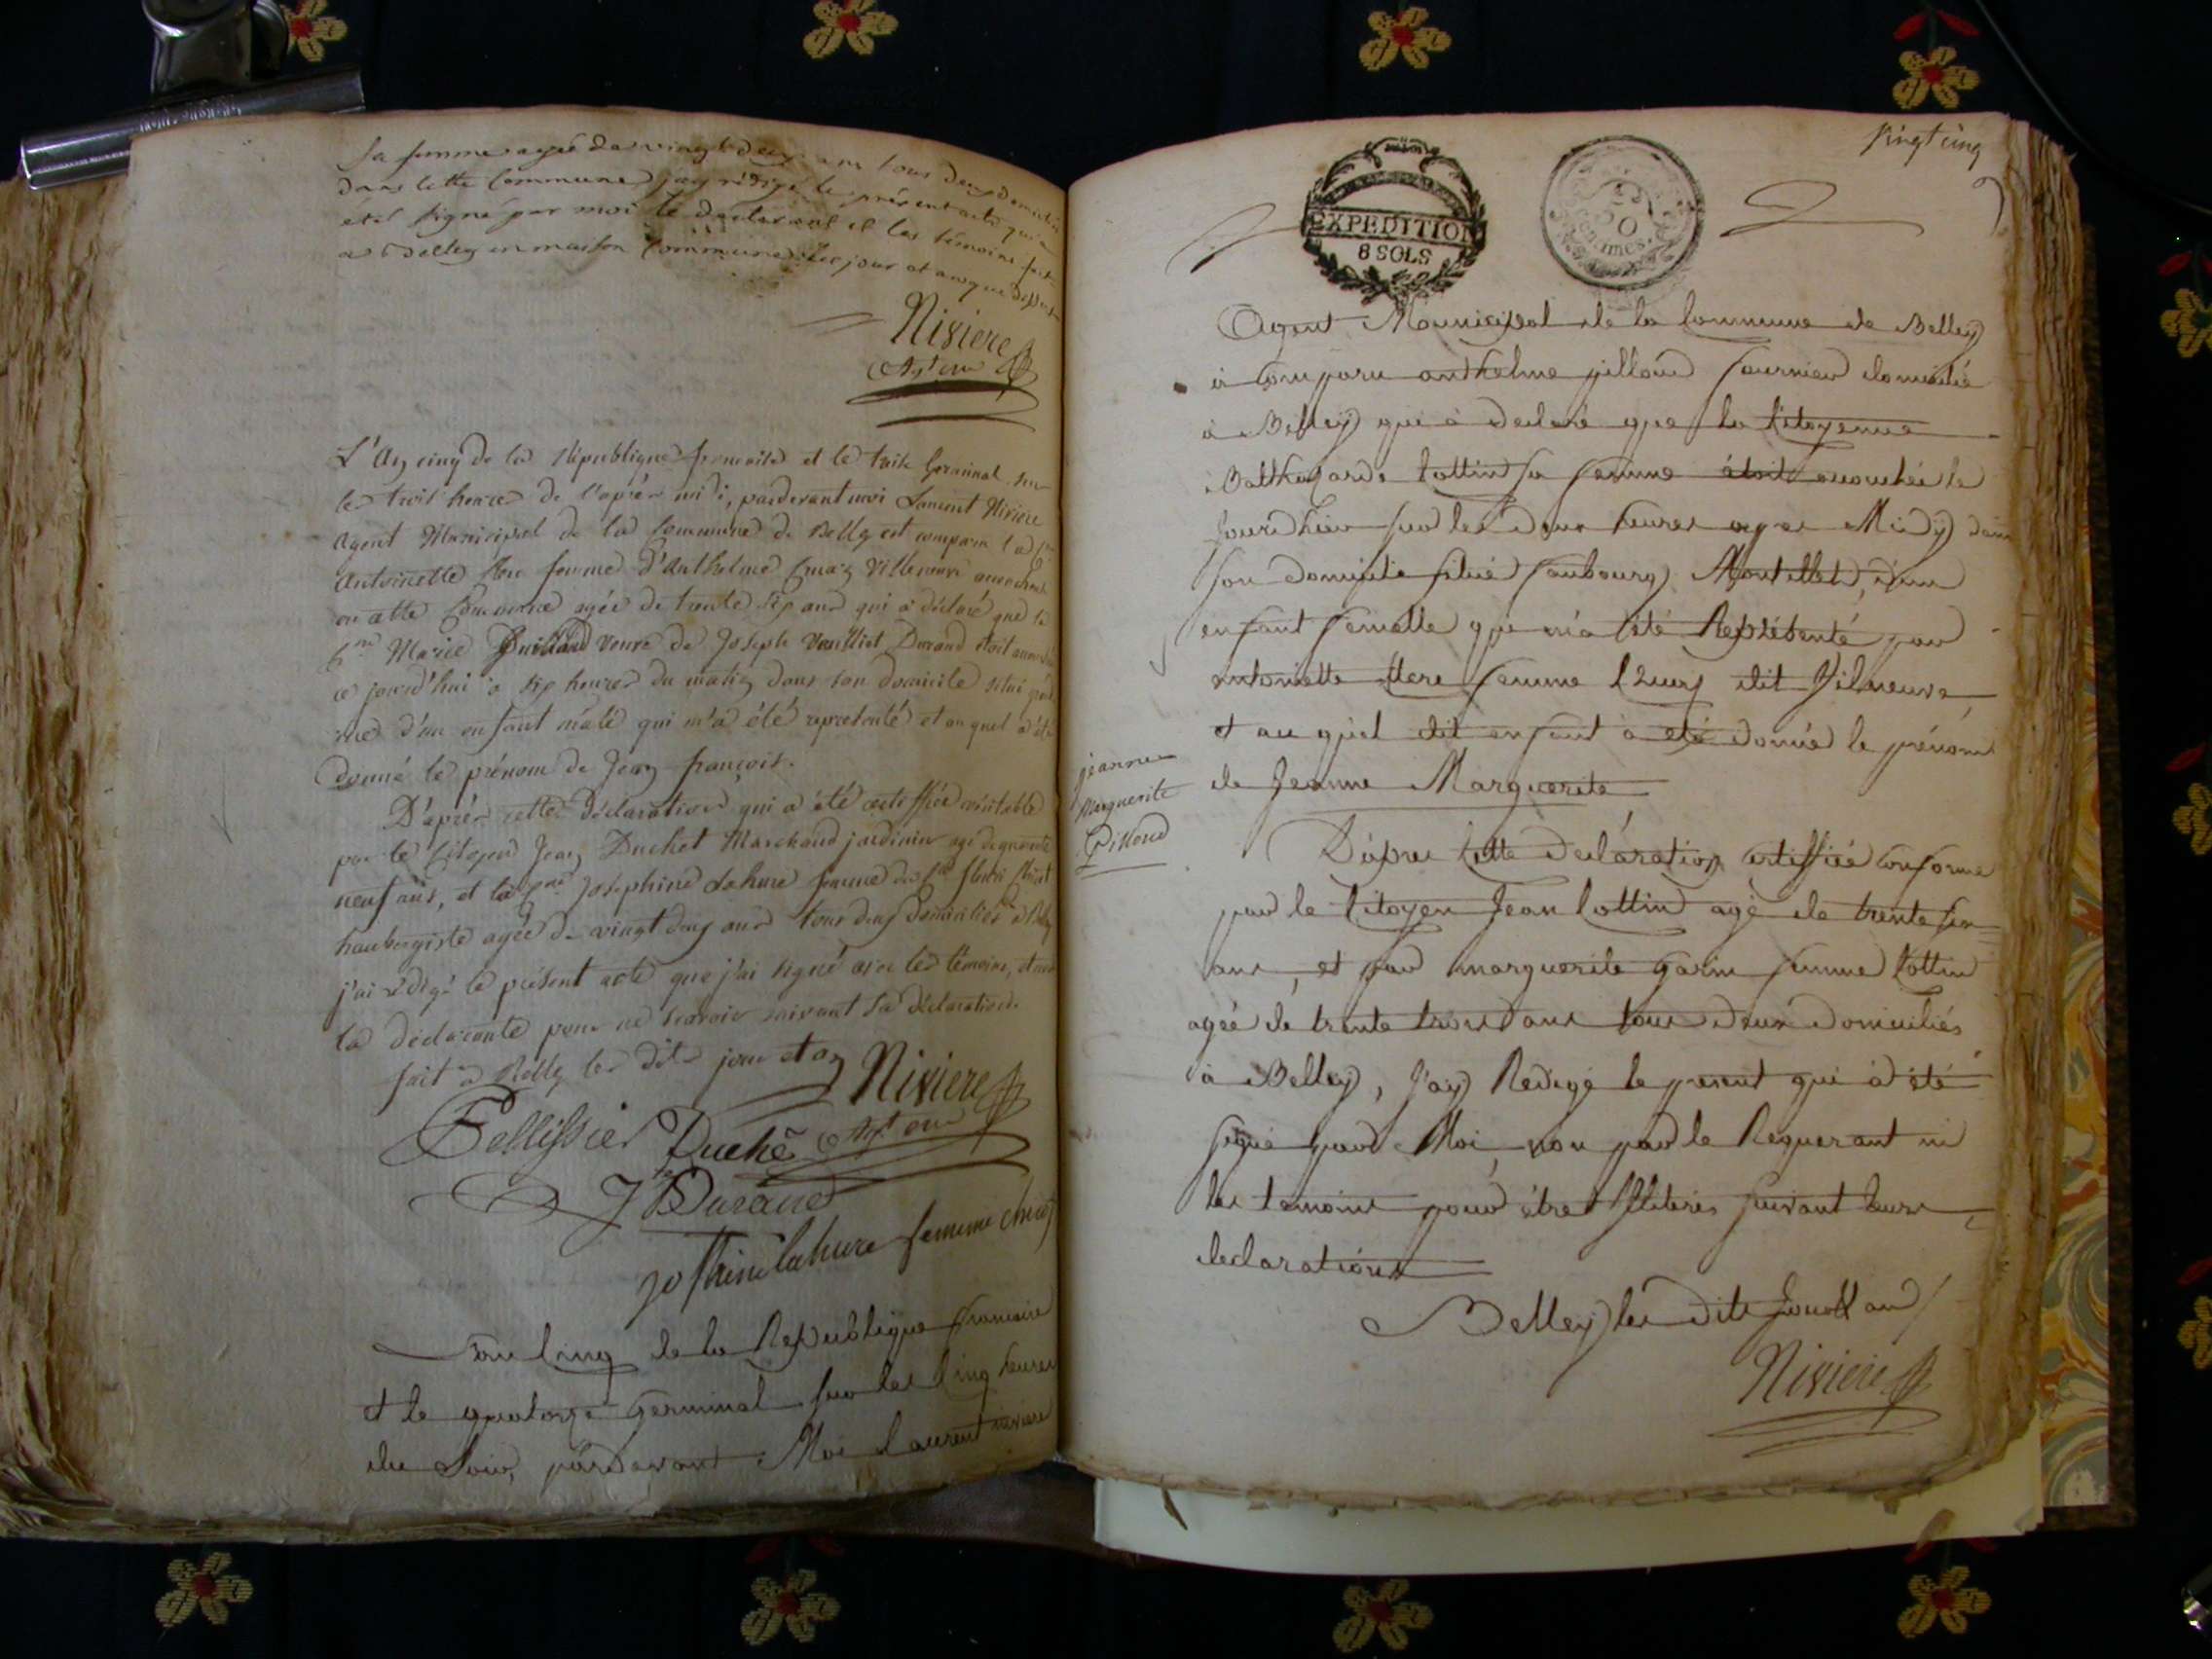 sa femme agée de vingt deux ans tous deux domiciliés
dans cette Commune j'ay rédigé le présent acte qui a
été signé par moi le déclarant et les témoins fait
a Belley en maison Commune les jour et an que dessus
Niviere
Agt mu
L'An cinq de la République francaise et le trois Germinal sur
les trois heures de l'après midi, pardevant moi Laurent Niviere
Agent Municipal de la Commune de Belley est comparu la Cne
Antoinette femme d'Anthelme Villeneuve
en cette Commune agée de trente six ans qui a déclaré que la
Cne Marie veuve de Joseph Durand étoit accouchée
ce jourd'hui à six heures du matin dans son domicile situé
d'un enfant mâle qui m'a été représenté et auquel a été
donné le prénom de Jean françois.
D'après cette déclaration qui a été certiffiée véritable
par le Citoyen Jean Duchet Marchand jardinier agé de
neuf ans, et la Cne Josephine Lahure femme du Cen
haubergiste agée de vingt deux ans tous deux domiciliés à Belley
j'ai rédigé le présent acte que j'ai signé avec les témoins, et non
la déclarante pour ne scavoir suivant sa déclaration.
fait à Belley les dits jour et an Niviere
Pellissier Duchê Agt mu
J Durand
josphine lahure femme
L'an Cinq de la Republique francaise
et le quatorze Germinal sur les Cinq heures
du Soir, pardevant Moi Laurent niviere
vingt cinq
EXPEDITION
8 SOLS
50
centimes.
Agent Municipal de la Commune de Belley
à Comparu anthelme pilloud fournier domicilié
à Belley qui à declaré que la Citoyenne
Balthazarde Cottin sa femme étoit accouchée le
Jourdhier sur les deux heures apres Midy dans
son domicile situé faubourg Montillet, d'un
enfant femelle qui m'a été Représenté par
antoinette femme dit Vilneuve
et au quel dit enfant à été donné le prénom
de Jeanne Marguerite
jeanne
Marguerite
Pilloud
D'après Cette declaration certiffiée Conforme
par le Citoyen Jean Cottin agé de trente six
ans, et par marguerite garin femme Cottin
agée de trente trois ans tous deux domiciliés
à Belley, J'ay Redigé le present qui à été
signé par Moi, non par le Requerant ni
les temoins pour être Illiterés suivant leurs
declarations
Belley les dits Jour et an
Niviere